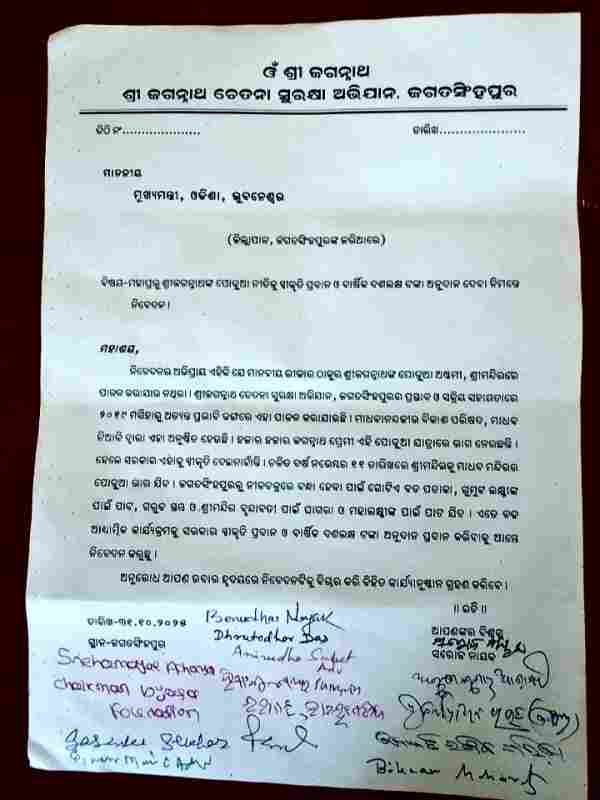 ଓଁ ଶ୍ରୀ ଜଗନ୍ନାଥ
ଶ୍ରୀ ଜଗନ୍ନାଥ ଚେତନା ସୁରକ୍ଷା ଅଭିଯାନ, ଜଗତସିଂହପୁର
ଚିଠି ନଂ.................... ତାରିଖ......................
ମାନନୀୟ
ମୁଖ୍ୟମନ୍ତ୍ରୀ, ଓଡିଶା, ଭୁବନେଶ୍ୱର
(ଜିଲ୍ଲାପାଳ, ଜଗତସିଂହପୁରଙ୍କ ଜରିଆରେ)
ବିଷୟ-ମହାପ୍ରଭୁ ଶ୍ରୀଜଗନ୍ନାଥଙ୍କ ପୋଢୁଆଁ ନୀତିକୁ ସ୍ୱୀକୃତି ପ୍ରଦାନ ଓ ବାର୍ଷିକ ଦଶଲକ୍ଷ ଟଙ୍କା ଅନୁଦାନ ଦେବା ନିମନ୍ତେ
ନିବେଦନ।
ମହାଶୟ,
ନିବେଦନର ଅଭିପ୍ରାୟ ଏହିକି ଯେ ମାନବୀୟ ଲୀଳାର ଠାକୁର ଶ୍ରୀଜଗନ୍ନାଥଙ୍କ ପୋଢୁଆଁ ଅଷ୍ଟମୀ, ଶ୍ରୀମନ୍ଦିରରେ
ପାଳନ କରାଯାଉ ନଥିଲା। ଶ୍ରୀଜଗନ୍ନାଥ ଚେତନା ସୁରକ୍ଷା ଅଭିଯାନ, ଜଗତସିଂହପୁରର ପ୍ରସ୍ତାବ ଓ ସକ୍ରିୟ ସହାୟତାରେ
୨୦୧୯ ମସିହାରୁ ଅତ୍ୟନ୍ତ ପ୍ରଭାବି ଢଙ୍ଗରେ ଏହା ପାଳନ କରାଯାଉଛି। ମାଧବାନନ୍ଦଜୀଉ ବିକାଶ ପରିଷଦ, ମାଧବ
ନିଆଳି ଦ୍ୱାରା ଏହା ଅନୁଷ୍ଠିତ ହେଉଛି। ହଜାର ହଜାର ଜଗନ୍ନାଥ ପ୍ରେମୀ ଏହି ପୋଢୁଆଁ ଯାତ୍ରାରେ ଭାଗ ନେଉଛନ୍ତି।
ହେଲେ ସରକାର ଏହାକୁ ସ୍ୱୀକୃତି ଦେଇନାହାଁନ୍ତି। ଚଳିତ ବର୍ଷ ନଭେମ୍ବର ୧୧ ତାରିଖରେ ଶ୍ରୀମନ୍ଦିରକୁ ମାଧବ ମନ୍ଦିରରୁ
ପୋଢୁଆଁ ଭାର ଯିବ। ଜଗତସିଂହପୁରରୁ ନୀଳଚକ୍ରରେ ବନ୍ଧା ହେବା ପାଇଁ ଗୋଟିଏ ବଡ ପତାକା, ଗୁମୁଟ ଲକ୍ଷ୍ମୀଙ୍କ
ପାଇଁ ପାଟ, ଗରୁଡ ସ୍ତମ୍ଭ ଓ ଶ୍ରୀମନ୍ଦିର ବୃନ୍ଦାବତୀ ପାଇଁ ପାଗରା ଓ ମହାଲକ୍ଷ୍ମୀଙ୍କ ପାଇଁ ପାଟ ଯିବ। ଏତେ ବଡ
ଆଧ୍ୟାତ୍ମିକ କାର୍ଯ୍ୟକ୍ରମକୁ ସରକାର ସ୍ୱୀକୃତି ପ୍ରଦାନ ଓ ବାର୍ଷିକ ଦଶଲକ୍ଷ ଟଙ୍କା ଅନୁଦାନ ପ୍ରଦାନ କରିବାକୁ ଆମ୍ଭେ
ନିବେଦନ କରୁଛୁ।
ଅନୁରୋଧ ଆପଣ ଉଦାର ହୃଦୟରେ ନିବେଦନଟିକୁ ବିଚାର କରି ବିହିତ କାର୍ଯ୍ୟାନୁଷ୍ଠାନ ଗ୍ରହଣ କରିବେ।
॥ ଇତି ॥
ତାରିଖ-୩୧.୧୦.୨୦୨୫ Benudhar Nayak ଆପଣଙ୍କର ବିଶ୍ୱସ୍ତ
ସ୍ଥାନ-ଜଗତସିଂହପୁର Dhrutodhar Das
ସରୋଜ ନାୟକ
Snehamayee Acharya
Chairman
Foundation